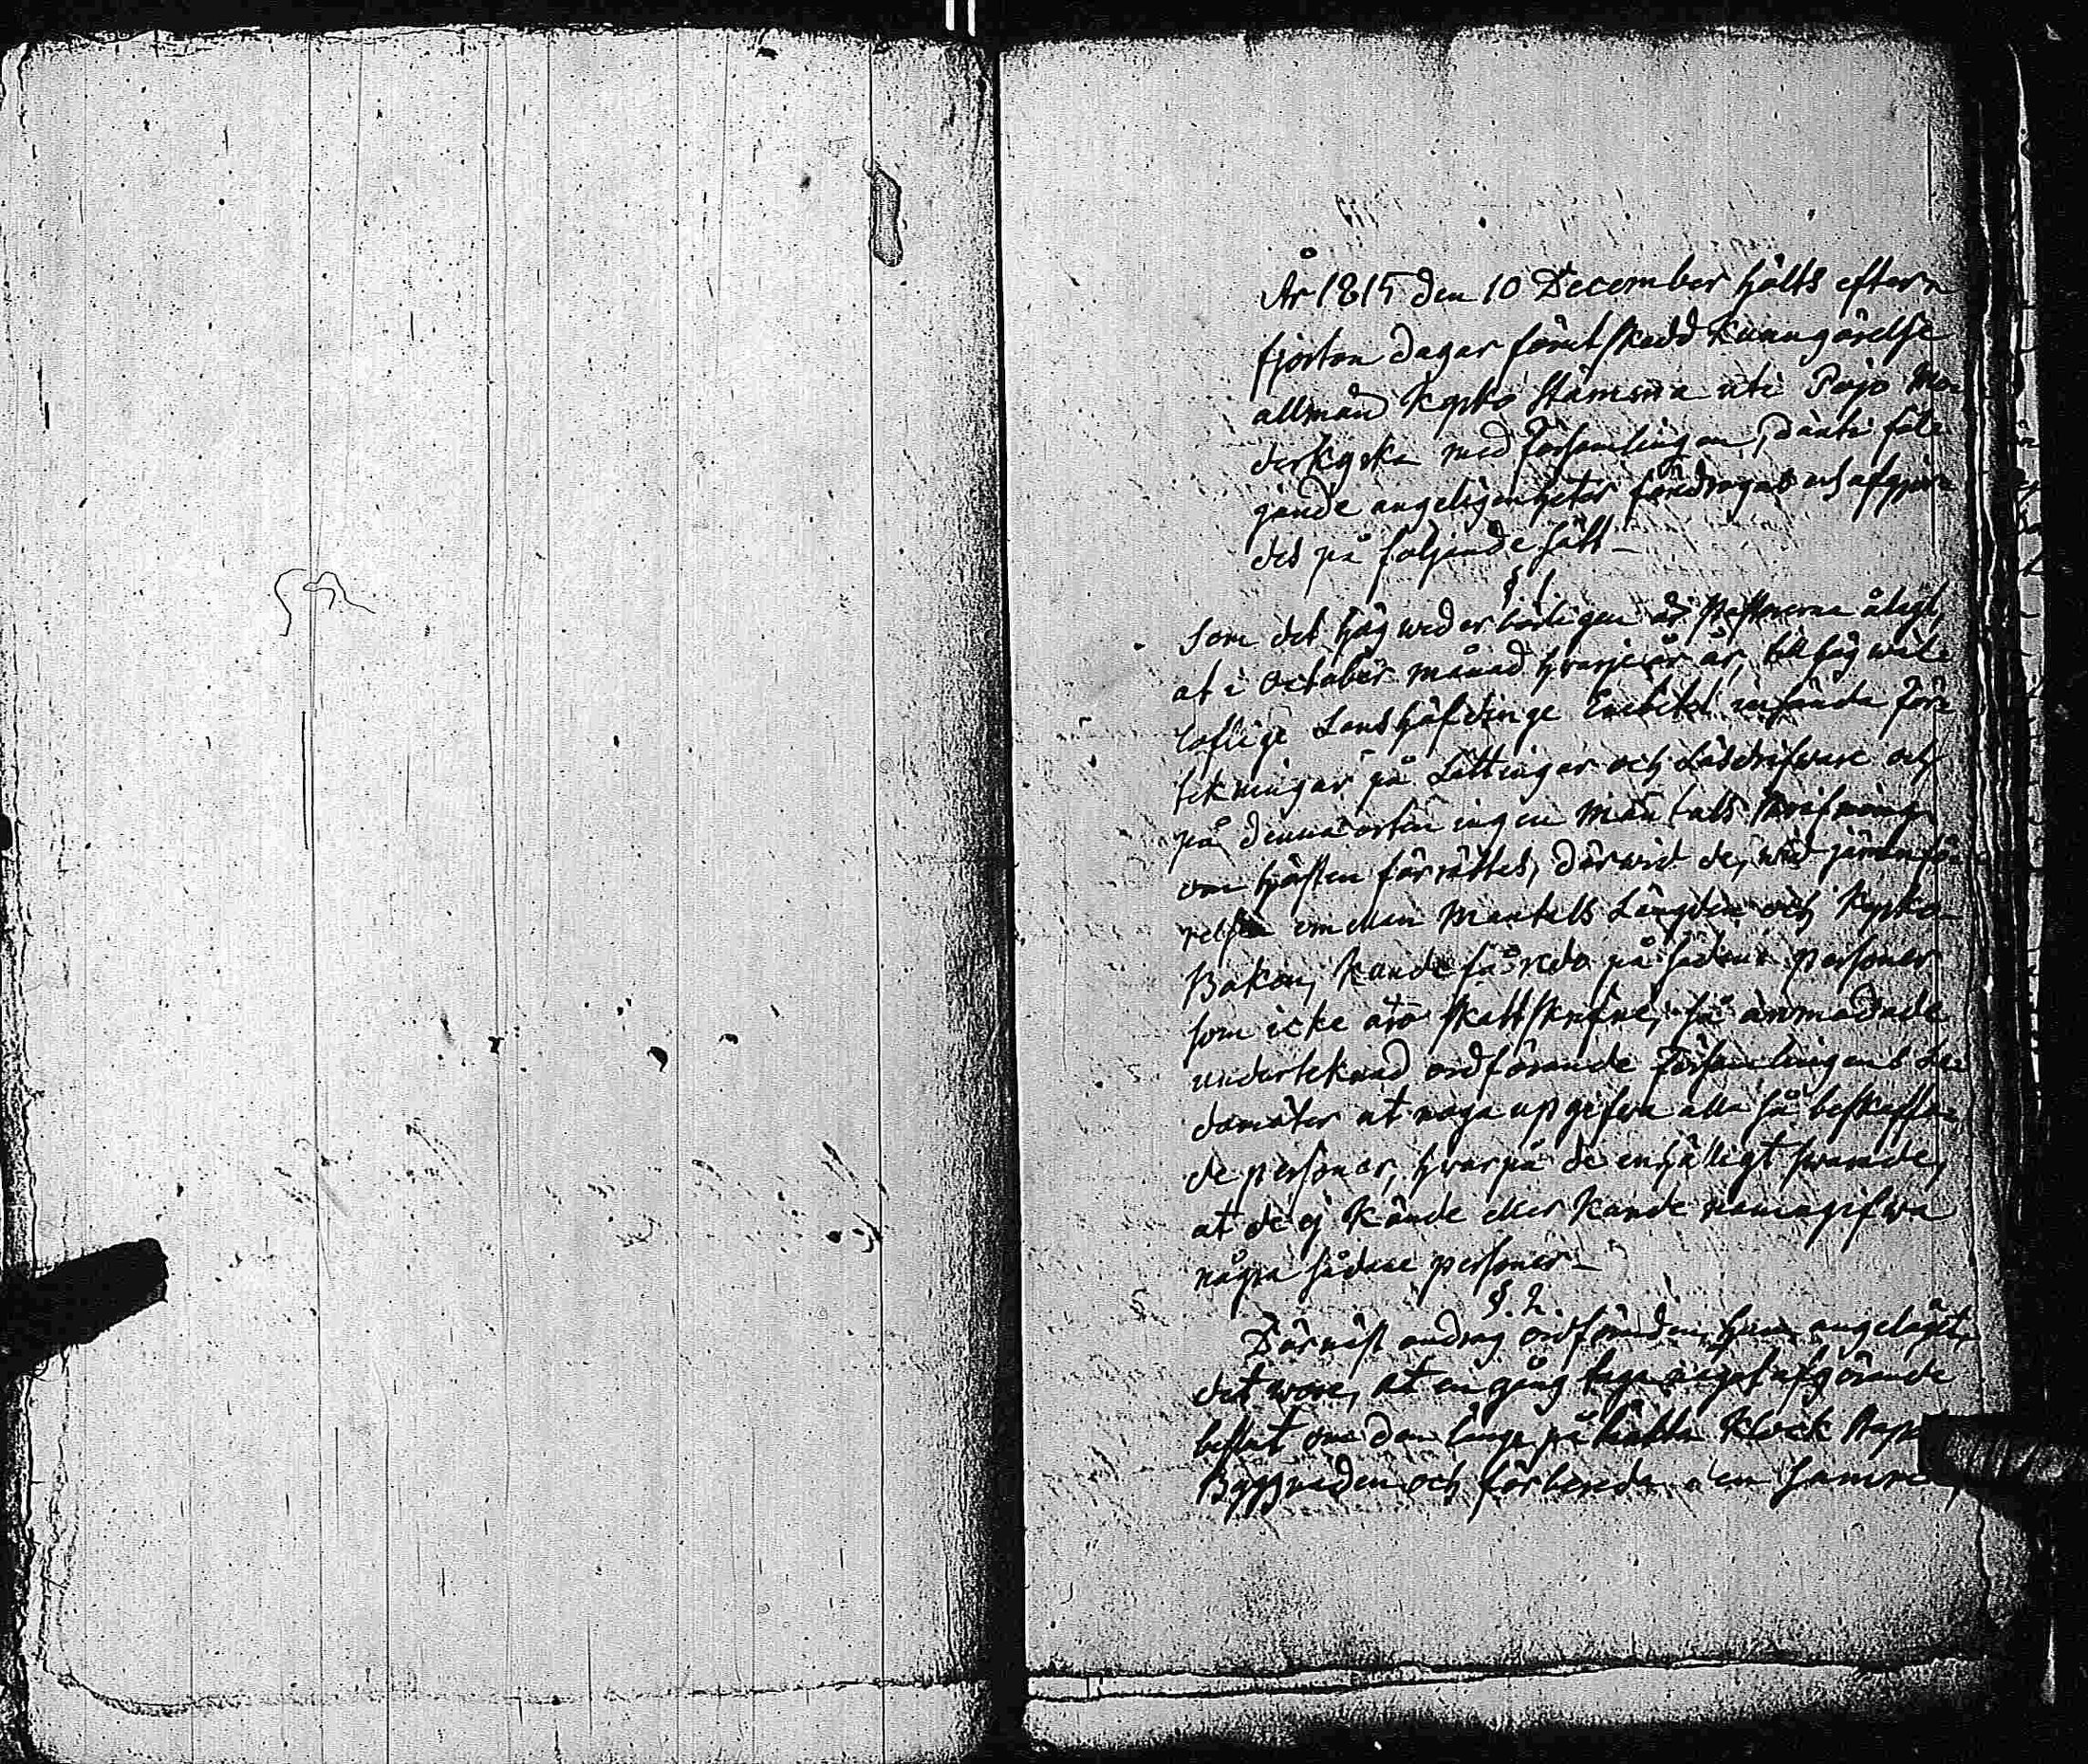 År 1815 den 10 December hölts efter
fjorton dagar förut skedd kuungörelse
allmän Kyrko stämma uti Pojo Mo-
derkyrka med Församlingen, dårtr föl-
jande angelägenheter föredrogos och afgjor-
des på följande sätt-
§. 1.
Som det högwederbörligen är Pastorerna ålagt,
at i October månad hvarje år, till hög wäl-
loflige Landshöfdinge Embetet insända för-
tekningar på Lättingar och Lösdrifware och
på denna orten ingen Mantals skrifning
om hösten förrättes, därwid de, wid jämnfö-
relsen emellan Mantals Längden och Kyrko-
Boken, kunde få reda på sådana personer
som icke äro skattskrifne, så anmodade
undertecknad ordförande Församlingens Le-
damöter at noga upgifwa alla så beskaffa-
de personer, hvarpå de enhälligt swarade,
at de ej kände eller kunde namngifwa
några sådane personer-
§. 2.
Därnäst androg ordföranden, huru angeläget
det wore, at en gång taga något afgörande
beslut om den länge påtänkta Klock Stap
Byggnaden och förbereda den samma,